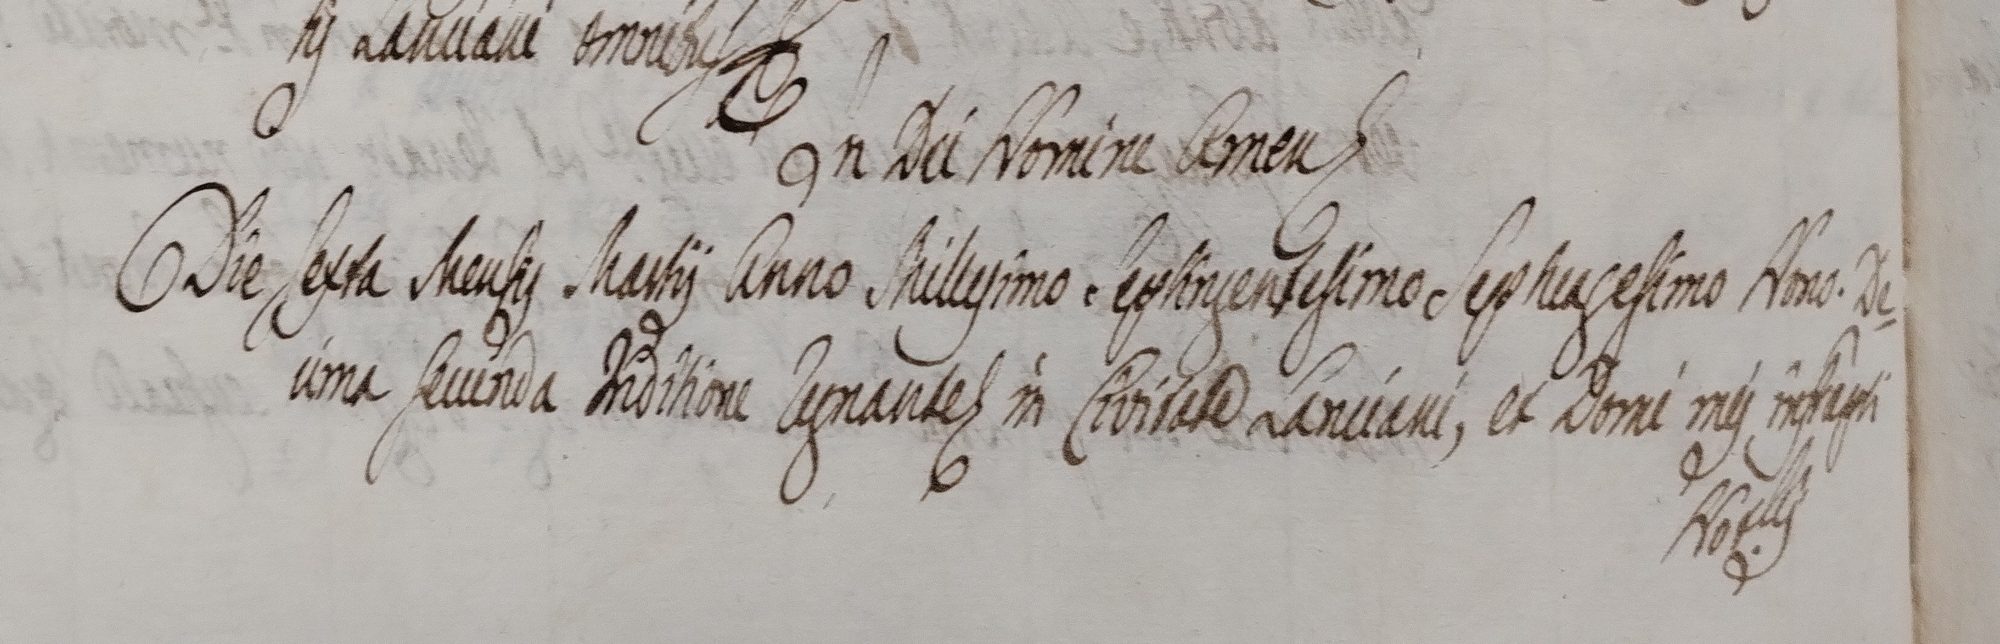 tij Lanciani omnibus
In Dei Nomine Amen
Die sexta Mensis Martij Anno Millesimo Septingentesimo Septuagesimo Nono. De=
cima secunda Inditione Regnante in Civitate Lanciani, et Domi mei infrapti